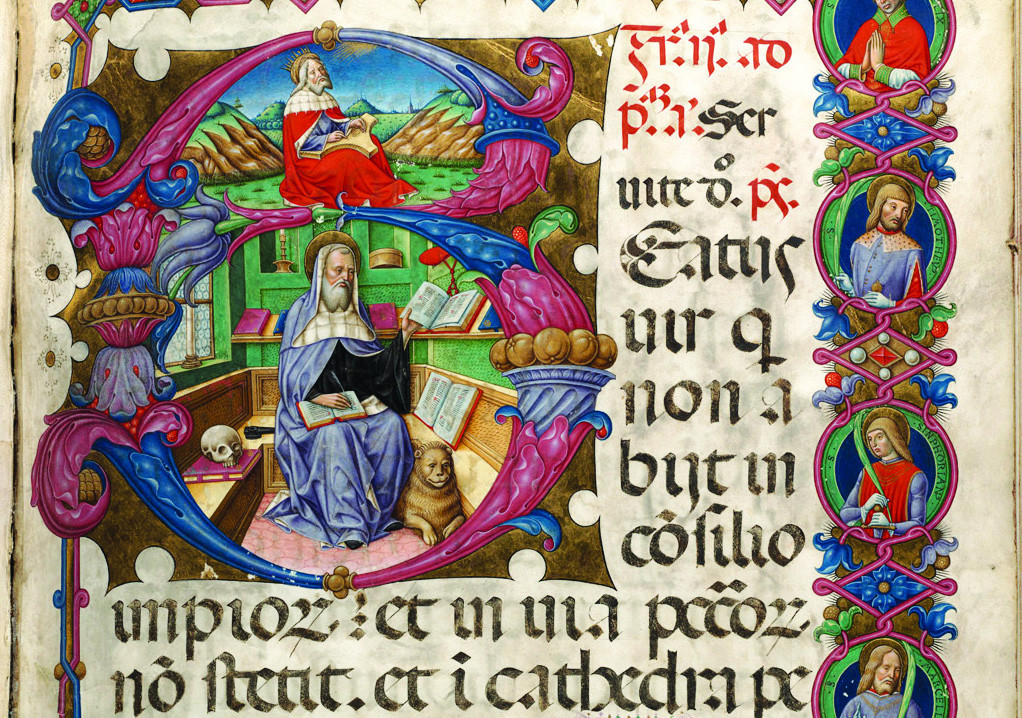 Fr. ij. ad
Ser
uite dō. ps.
Eatus
uir q̄
non a
bijt in
cōsilio
impioꝝ: et in uia pecc̄oꝝ
nō stetit. et ī cathedra pe
S
S
S